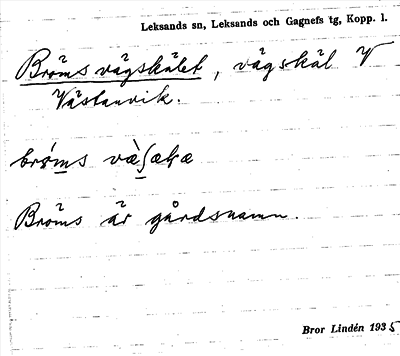 Leksands sn, Leksands och Gagnefs tg, Kopp. l.
Bröms vägskälet, vägskäl V
Västanvik.
brö́ms
Bröms är gårdsnamn.
Bror Lindén 1935